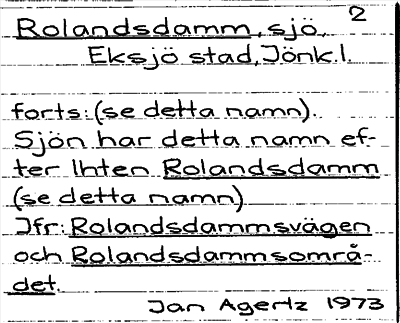 2
Rolandsdamm, sjö,
Eksjö stad, Jönk.l.
forts: (se detta namn).
Sjön har detta namn ef-
ter Inten Rolandsdamm
(se detta namn)
Jfr: Rolandsdammsvägen
och Rolandsdammsområ-
det.
Jan Agertz 1973